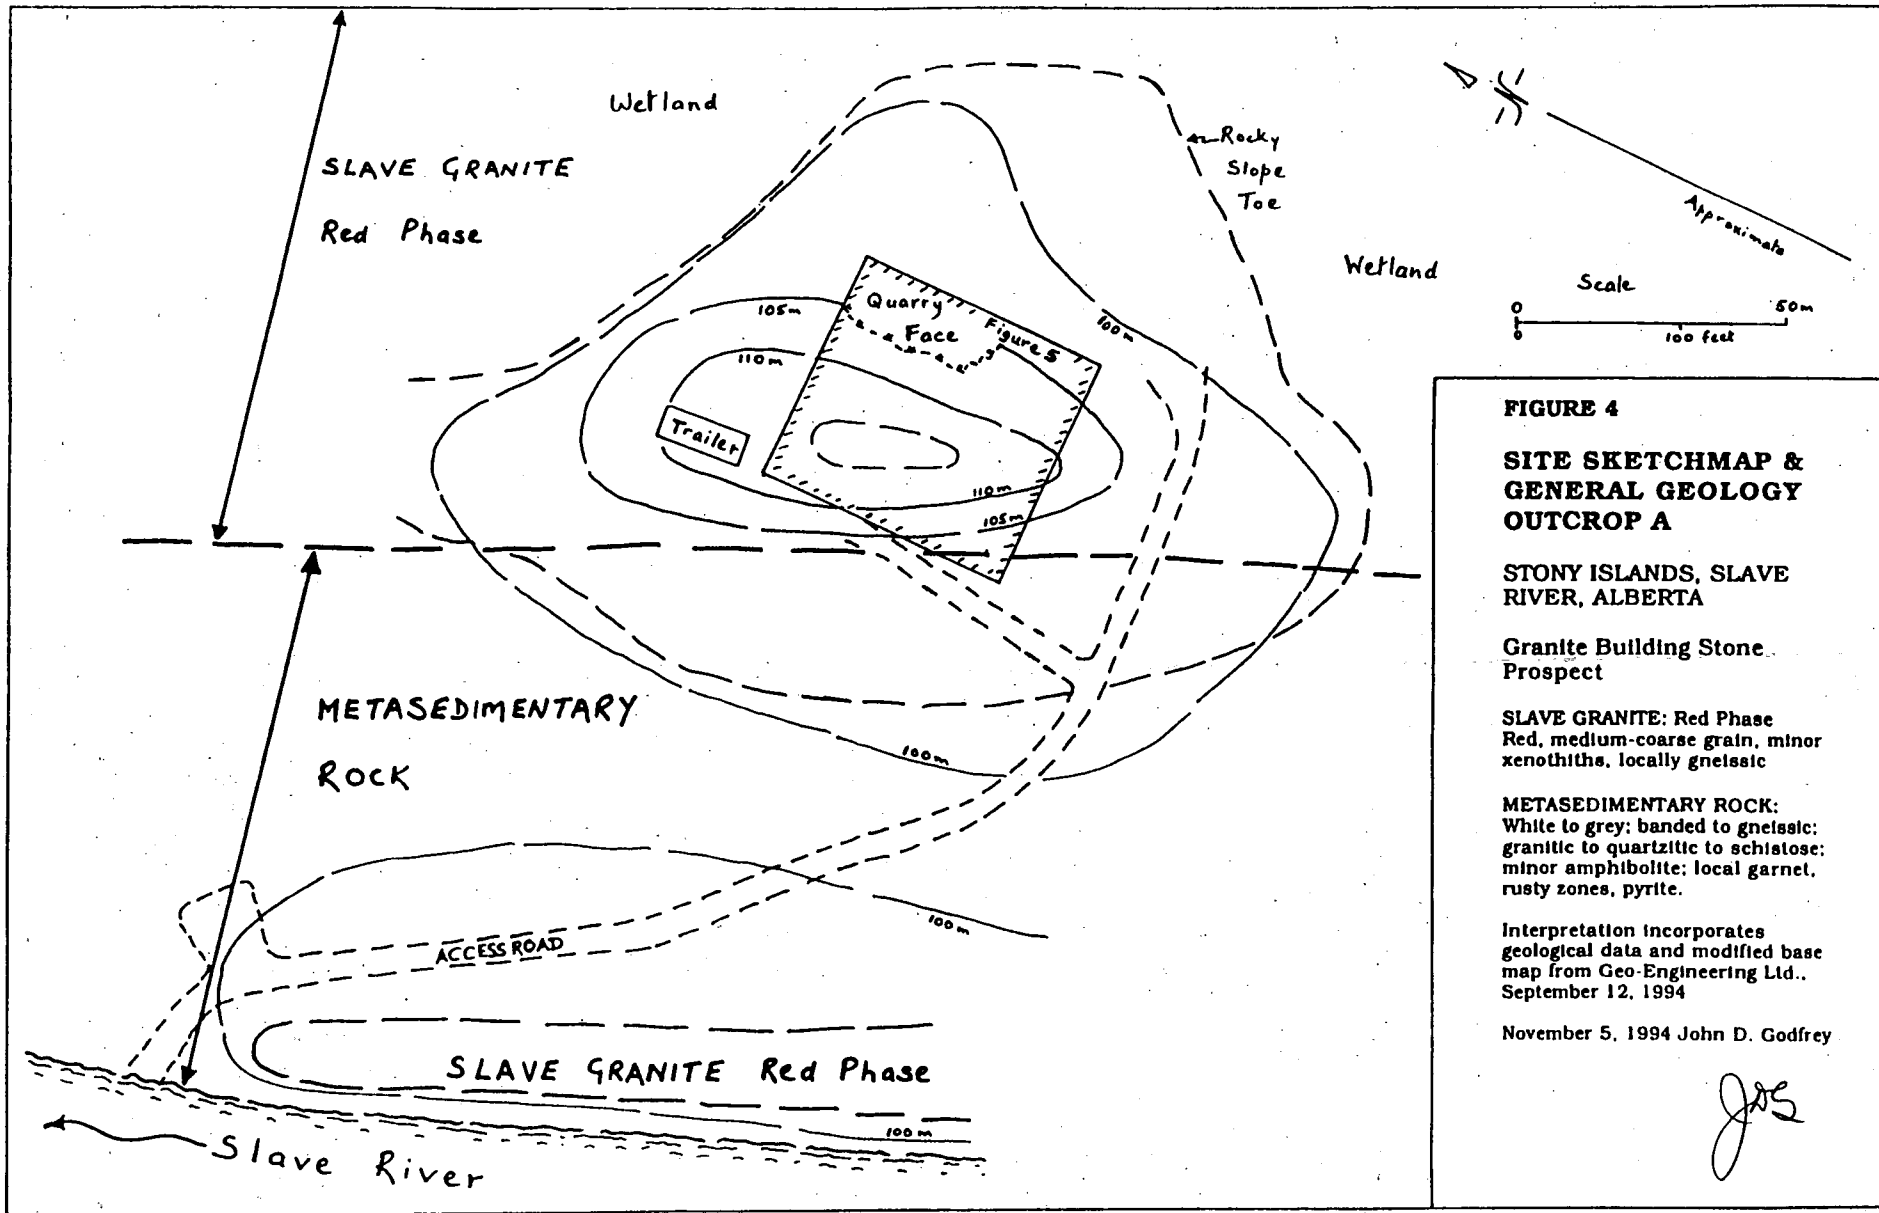 Wetland
SLAVE GRANITE
Red Phase
Rocky
Slope
Toe
Wetland
Approximate
Scale
0
50m
0
100 feet
Quarry
Face
Figure 5
105m
110m
100m
Trailer
110m
105m
METASEDIMENTARY
ROCK
100m
100m
ACCESS ROAD
SLAVE GRANITE Red Phase
100m
Slave River
FIGURE 4
SITE SKETCHMAP &
GENERAL GEOLOGY
OUTCROP A
STONY ISLANDS, SLAVE
RIVER, ALBERTA
Granite Building Stone
Prospect
SLAVE GRANITE: Red Phase
Red, medium-coarse grain, minor
xenothiths, locally gneissic
METASEDIMENTARY ROCK:
White to grey; banded to gneissic;
granitic to quartzitic to schistose;
minor amphibolite; local garnet,
rusty zones, pyrite.
Interpretation incorporates
geological data and modified base
map from Geo-Engineering Ltd.,
September 12, 1994
November 5, 1994 John D. Godfrey
JDG